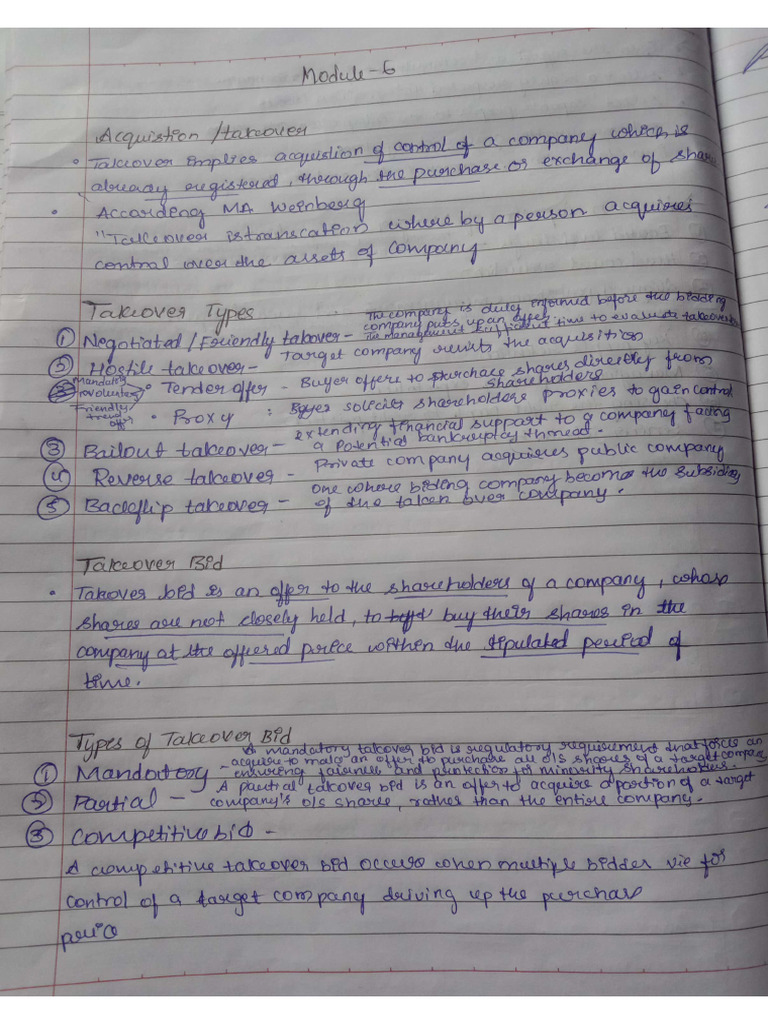 Module-6
Acquistion /takeover
• Takeover implies acquistion of control of a company which is
already registered, through the purchase or exchange of share
• According MA Weinberg
"Takeover is transcation where by a person acquires
control over the assets of company
Takeover Types
① Negotiated / Friendly takover - The company is duly informed before the bidding
company puts up an offer.
The management sufficient time to evaluate takeover
② Hostile takeover - Target company resists the acquisition
Mandatory
involuntary
Friendly
offer
• Tender offer - Buyer offers to purchase shares directly from
shareholders
• Proxy : Buyer solicits shareholders proxies to gain control
③ Bailout takeover - extending financial support to a company facing
a potential bankruptcy thread.
④ Reverse takeover - Private company acquires public company
⑤ Backflip takeover - one where biding company become the subsidiary
of the taken over company.
Takeover Bid
• Takeover bid is an offer to the shareholders of a company, whose
shares are not closely held, to buy their shares in the
company at the offered price within the stipulated period of
time.
Types of Takeover Bid
① Mandatory - A mandatory takover bid is regulatory requirement that forces an
acquire to make an offer to purchase all o/s shares of a target company
ensuring fairness and protection for minority shareholders.
② Partial - A partial takover bid is an offer to acquire a portion of a target
company's o/s share, rather than the entire company.
③ Competitive bid -
A competitive takeover bid occurs when multiple bidder vie for
control of a target company driving up the purchase
price